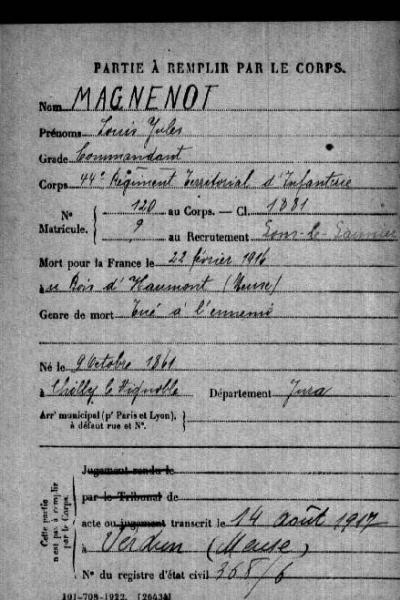 PARTIE À REMPLIR PAR LE CORPS.
Nom MAGNENOT
Prénoms Louis Jules
Grade Commandant
Corps 44e Régiment Territorial d'Infanterie
N° Matricule. 120 au Corps. — Cl. 1881
9 au Recrutement Lons-le-Saunier
Mort pour la France le 22 février 1916
au Bois d'Haumont (Meuse)
Genre de mort Tué à l'ennemi
Né le 9 Octobre 1861
à Chilly le Vignoble Département Jura
Arrt municipal (pr Paris et Lyon), à défaut rue et N°.
Cette partie n'est pas à remplir par le Corps.
Jugement rendu le
par le Tribunal de
acte ou jugement transcrit le 14 août 1917
à Verdun (Meuse)
N° du registre d'état civil 368/6
101-708-1922. [26434]